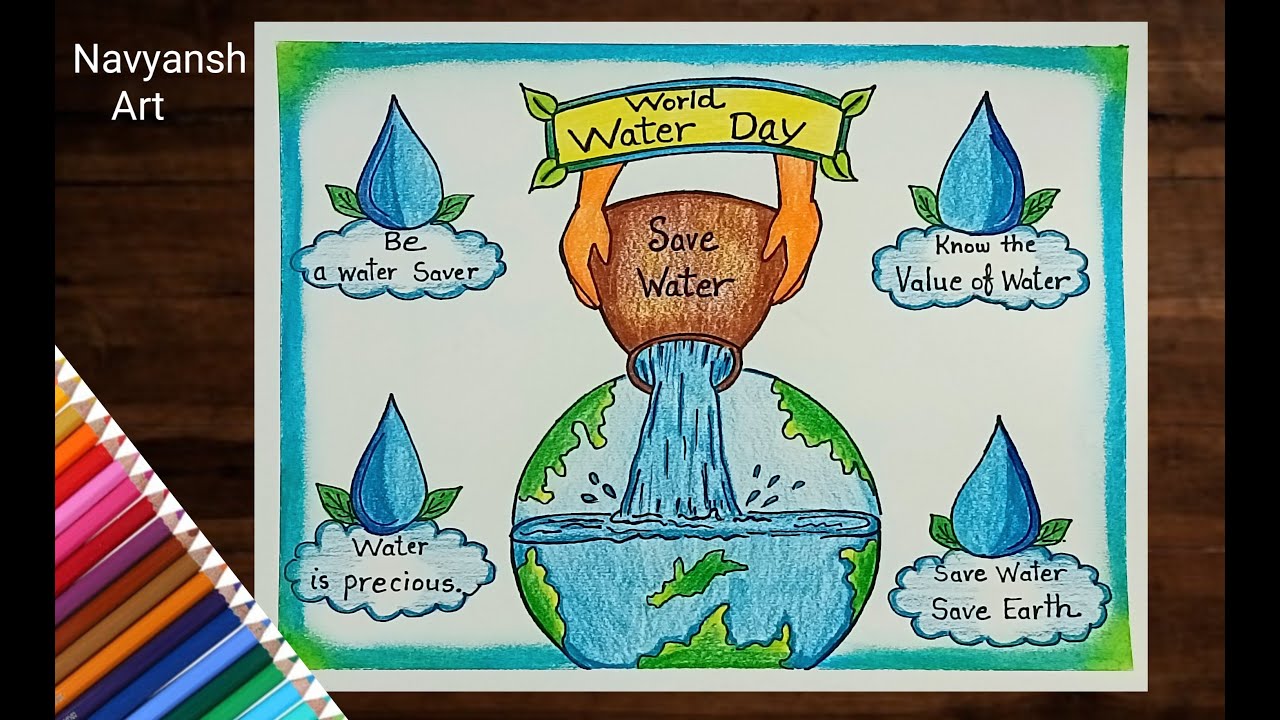 Navyansh
Art
World
Water Day
Save
Water
Be
a water Saver
Know the
Value of Water
Water
is precious.
Save Water
Save Earth